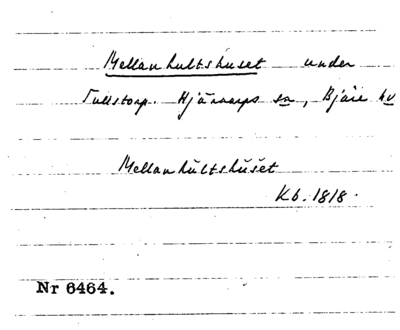 Mellanhultshuset under
Tullstorp. Hjärnarps sn, Bjäre hd
Mellanhultshuset
Kb. 1818.
Nr 6464.